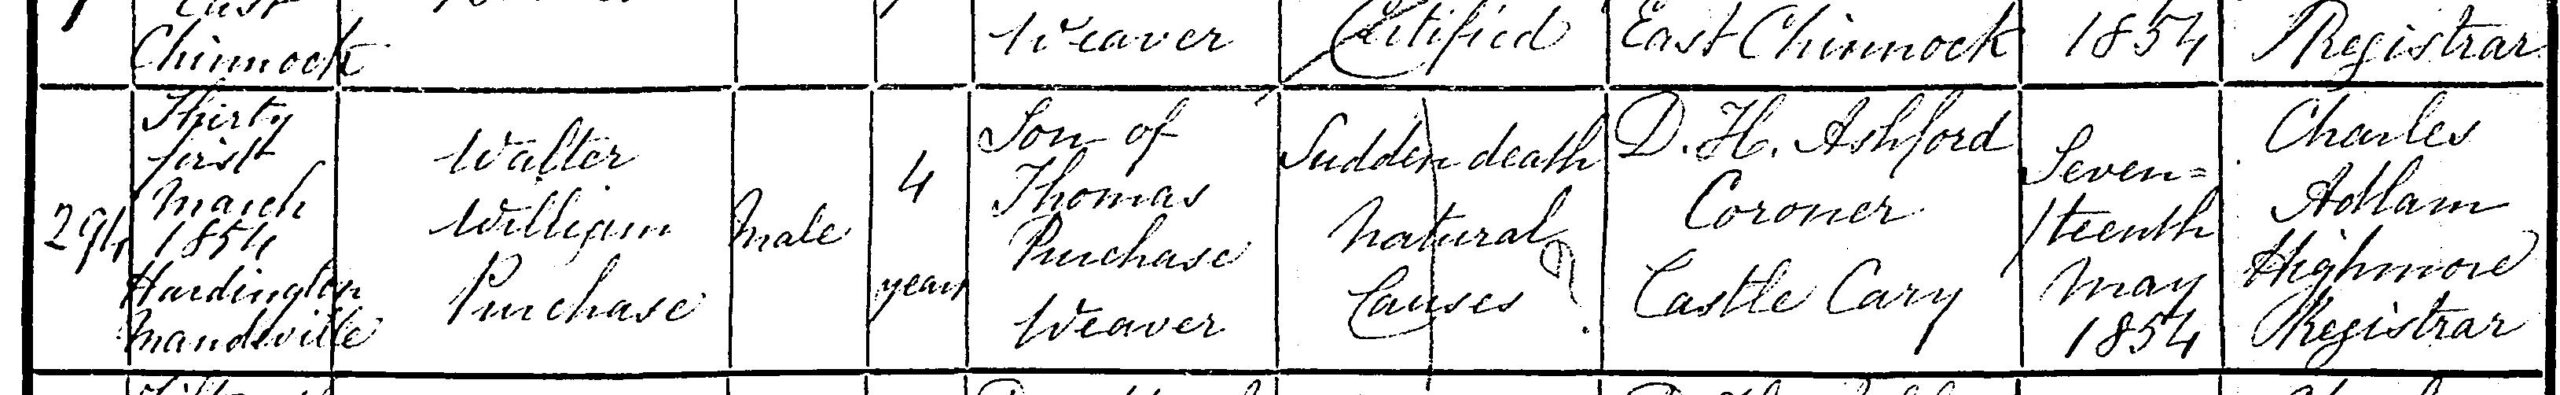 East
Chinnock
Weaver
Certified
East Chinnock
1854
Registrar
294
Thirty
first
March
1854
Hardington
Mandeville
Walter
William
Purchase
Male
4
years
Son of
Thomas
Purchase
Weaver
Sudden death
Natural
Causes
D. H. Ashford
Coroner
Castle Cary
Seven=
teenth
May
1854
Charles
Adlam
Highmore
Registrar